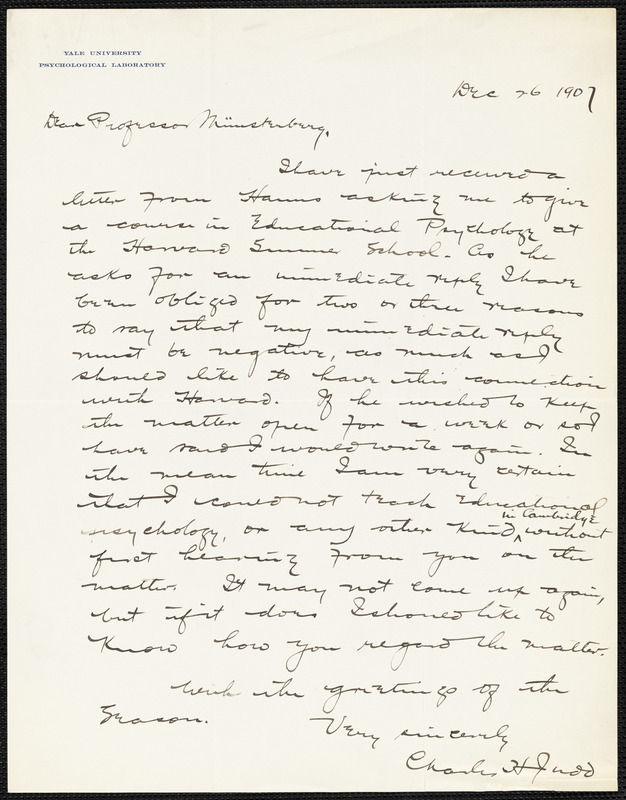 YALE UNIVERSITY
PSYCHOLOGICAL LABORATORY
Dec 26 1907
Dear Professor Münsterberg,
I have just received a
letter from Hanus asking me to give
a course in Educational Psychology at
the Harvard Summer School. As he
asks for an immediate reply I have
been obliged for two or three reasons
to say that my immediate reply
must be negative, as much as I
should like to have this connection
with Harvard. If he wished to keep
the matter open for a week or so I
have said I would write again. In
the mean time I am very certain
that I could not teach Educational
in Cambridge
psychology, or any other kind, ^ without
first hearing from you on the
matter. It may not come up again,
but if it does I should like to
know how you regard the matter.
With the greetings of the
Season.
Very sincerely
Charles H Judd